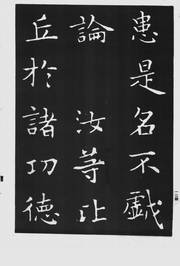 患是名不戲
論 汝等比
丘於諸功德